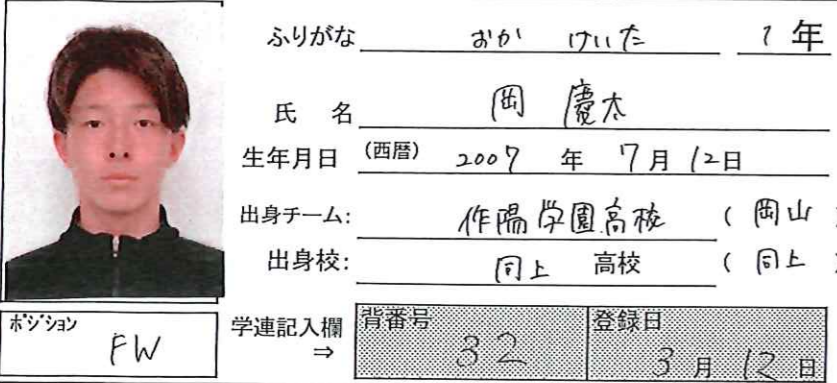 ふりがな おか けいた 1年
氏 名 岡 慶太
生年月日 (西暦) 2007 年 7月 12日
出身チーム: 作陽学園高校 ( 岡山
出身校: 同上 高校 ( 同上
ポジション FW
学連記入欄 ⇒
背番号 32
登録日 3月 12日